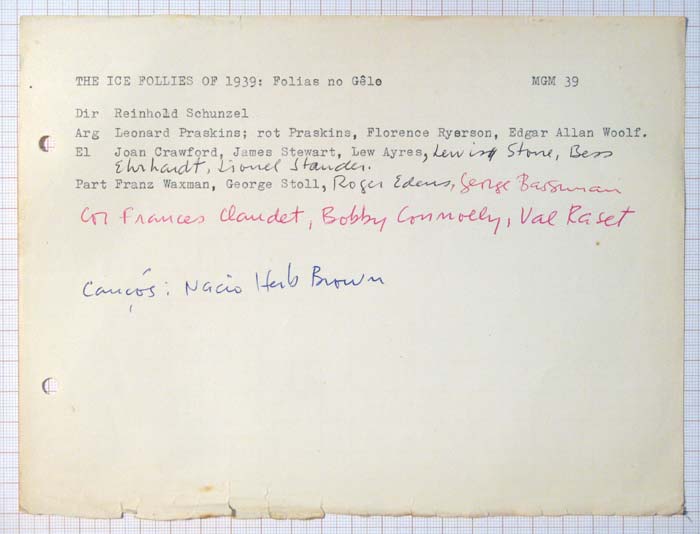 THE ICE FOLLIES OF 1939: Folias no Gêlo MGM 39
Dir Reinhold Schunzel
Arg Leonard Praskins; rot Praskins, Florence Ryerson, Edgar Allan Woolf.
El Joan Crawford, James Stewart, Lew Ayres, Lewis Stone, Bess
Ehrhardt, Lionel Stander.
Part Franz Waxman, George Stoll, Roger Edens, George Bassman
Cor Frances Claudet, Bobby Connolly, Val Raset
Canções: Nacio Herb Brown